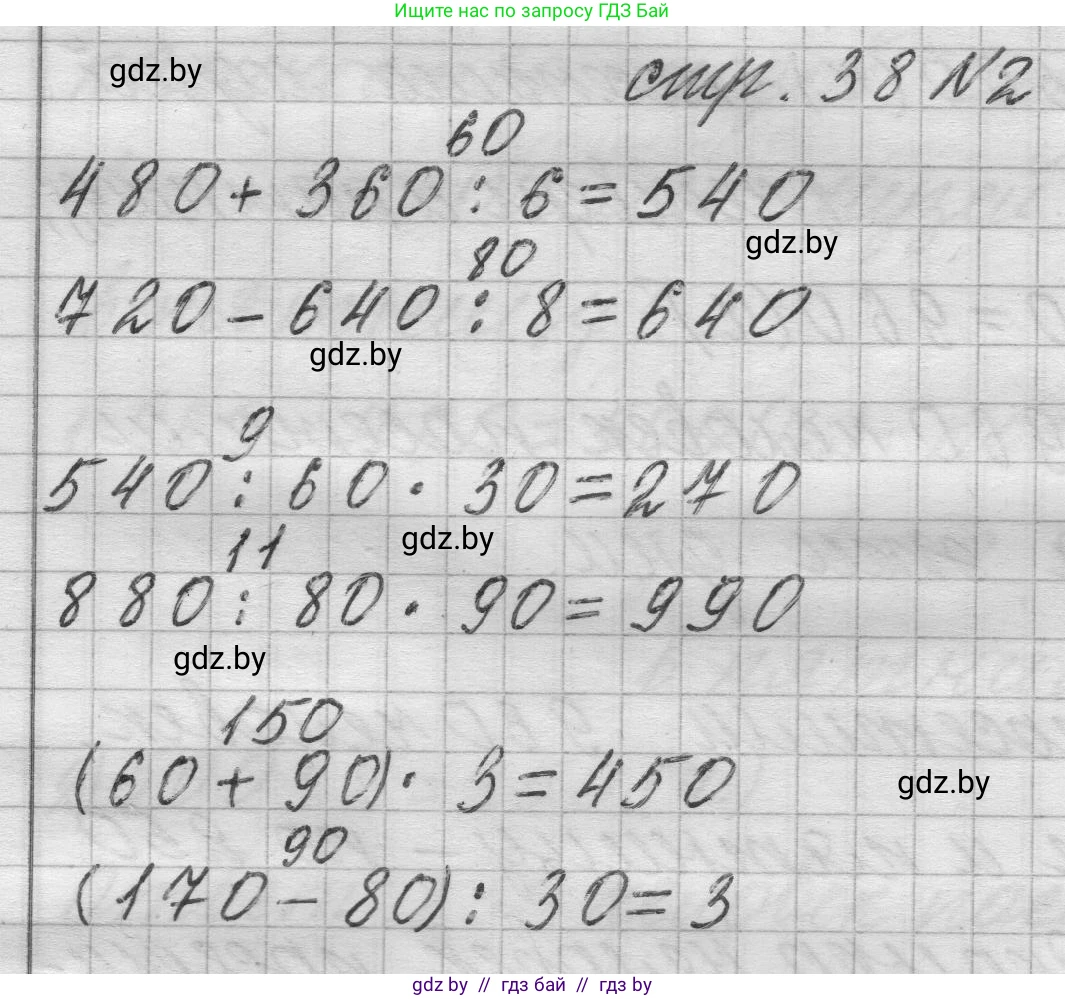 Ищите нас по запросу ГДЗ Бай
gdz.by
стр. 38 №2
60
480 + 360 : 6 = 540
gdz.by
80
720 - 640 : 8 = 640
gdz.by
9
540 : 60 · 30 = 270
gdz.by
11
880 : 80 · 90 = 990
gdz.by
150
(60 + 90) · 3 = 450
gdz.by
90
(170 - 80) : 30 = 3
gdz.by // гдз бай // gdz by